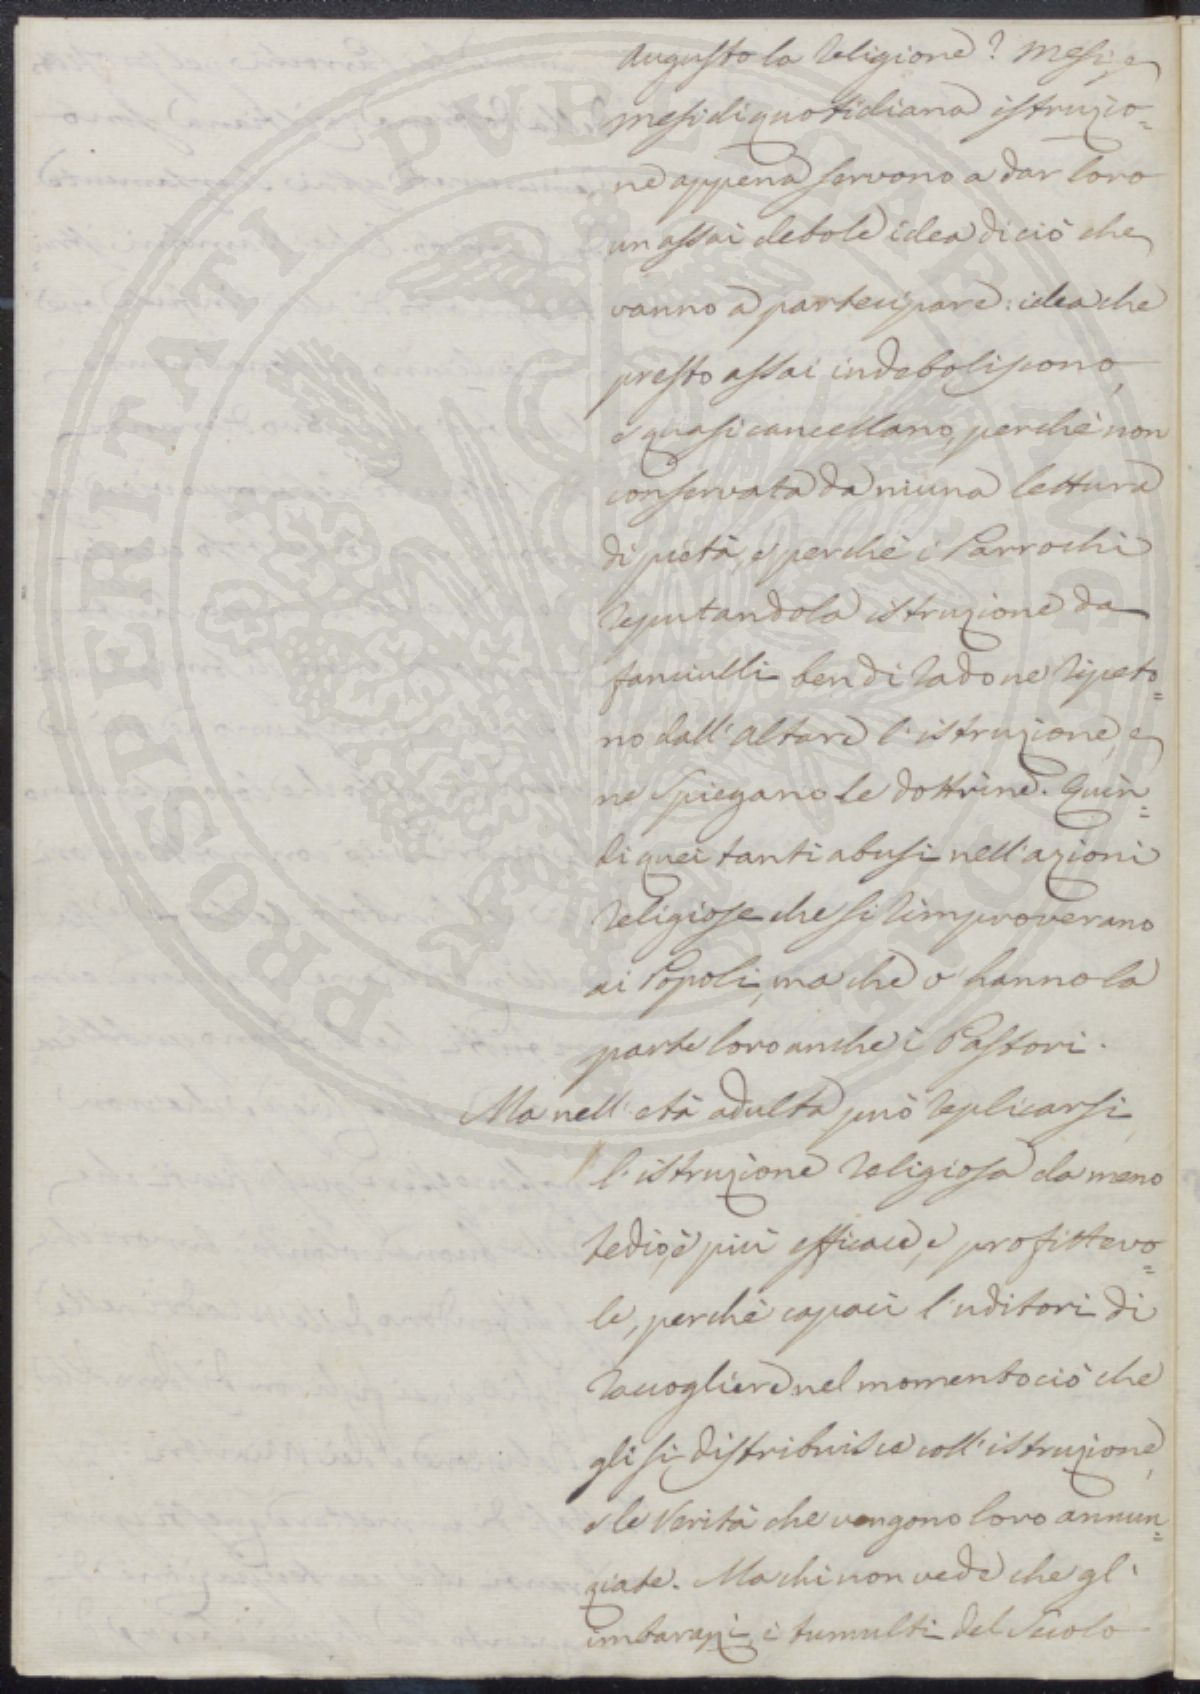 Augusto la Religione? Mesi, e
mesi di quotidiana istruzio=
ne appena servono a dar loro
un assai debole idea di ciò che
vanno a partecipare: idea che
presto assai indeboliscono,
e quasi cancellano, perchè non
conservata da niuna lettura
di pietà, e perchè i Parrochi
reputandola istruzione da
fanciulli ben di rado ne ripeto=
no dall'altare l'istruzione, e
ne spiegano le dottrine. Quin=
di quei tanti abusi nell'azioni
religiose che si rimproverano
ai Popoli, ma che v'hanno la
parte loro anche i Pastori.
Ma nell'età adulta può replicarsi
l'istruzione religiosa da meno
tedio, è più efficace, e profittevo=
le, perchè capaci l'uditori di
raccogliere nel momento ciò che
gli si distribuisce coll'istruzione,
e le Verità che vengono loro annun=
ziate. Ma chi non vede che gl'
imbarazzi, i tumulti del Secolo
PROSPERITATI PVBLICAE